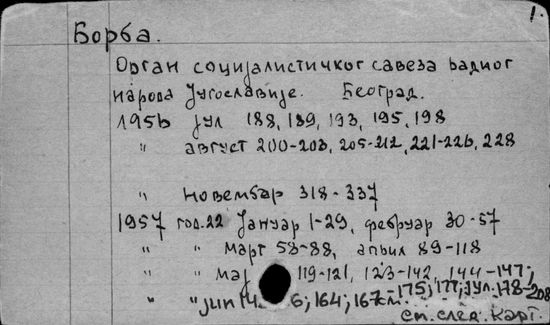 1.
Борба.
Орган социјалистичког савеза радног
народа Југославије. Београд.
1956 јул 188, 189, 193, 195, 198
" август 200-203, 205-212, 221-226, 228
" новембар 318-337
1957 год.22 јануар 1-29, фебруар 30-57
" " март 58-88, април 89-118
" " мај 119-121, 123-142, 144-147;
" " јуни 6; 164; 167 175; 177; јул. 178-208
см. след. карт.